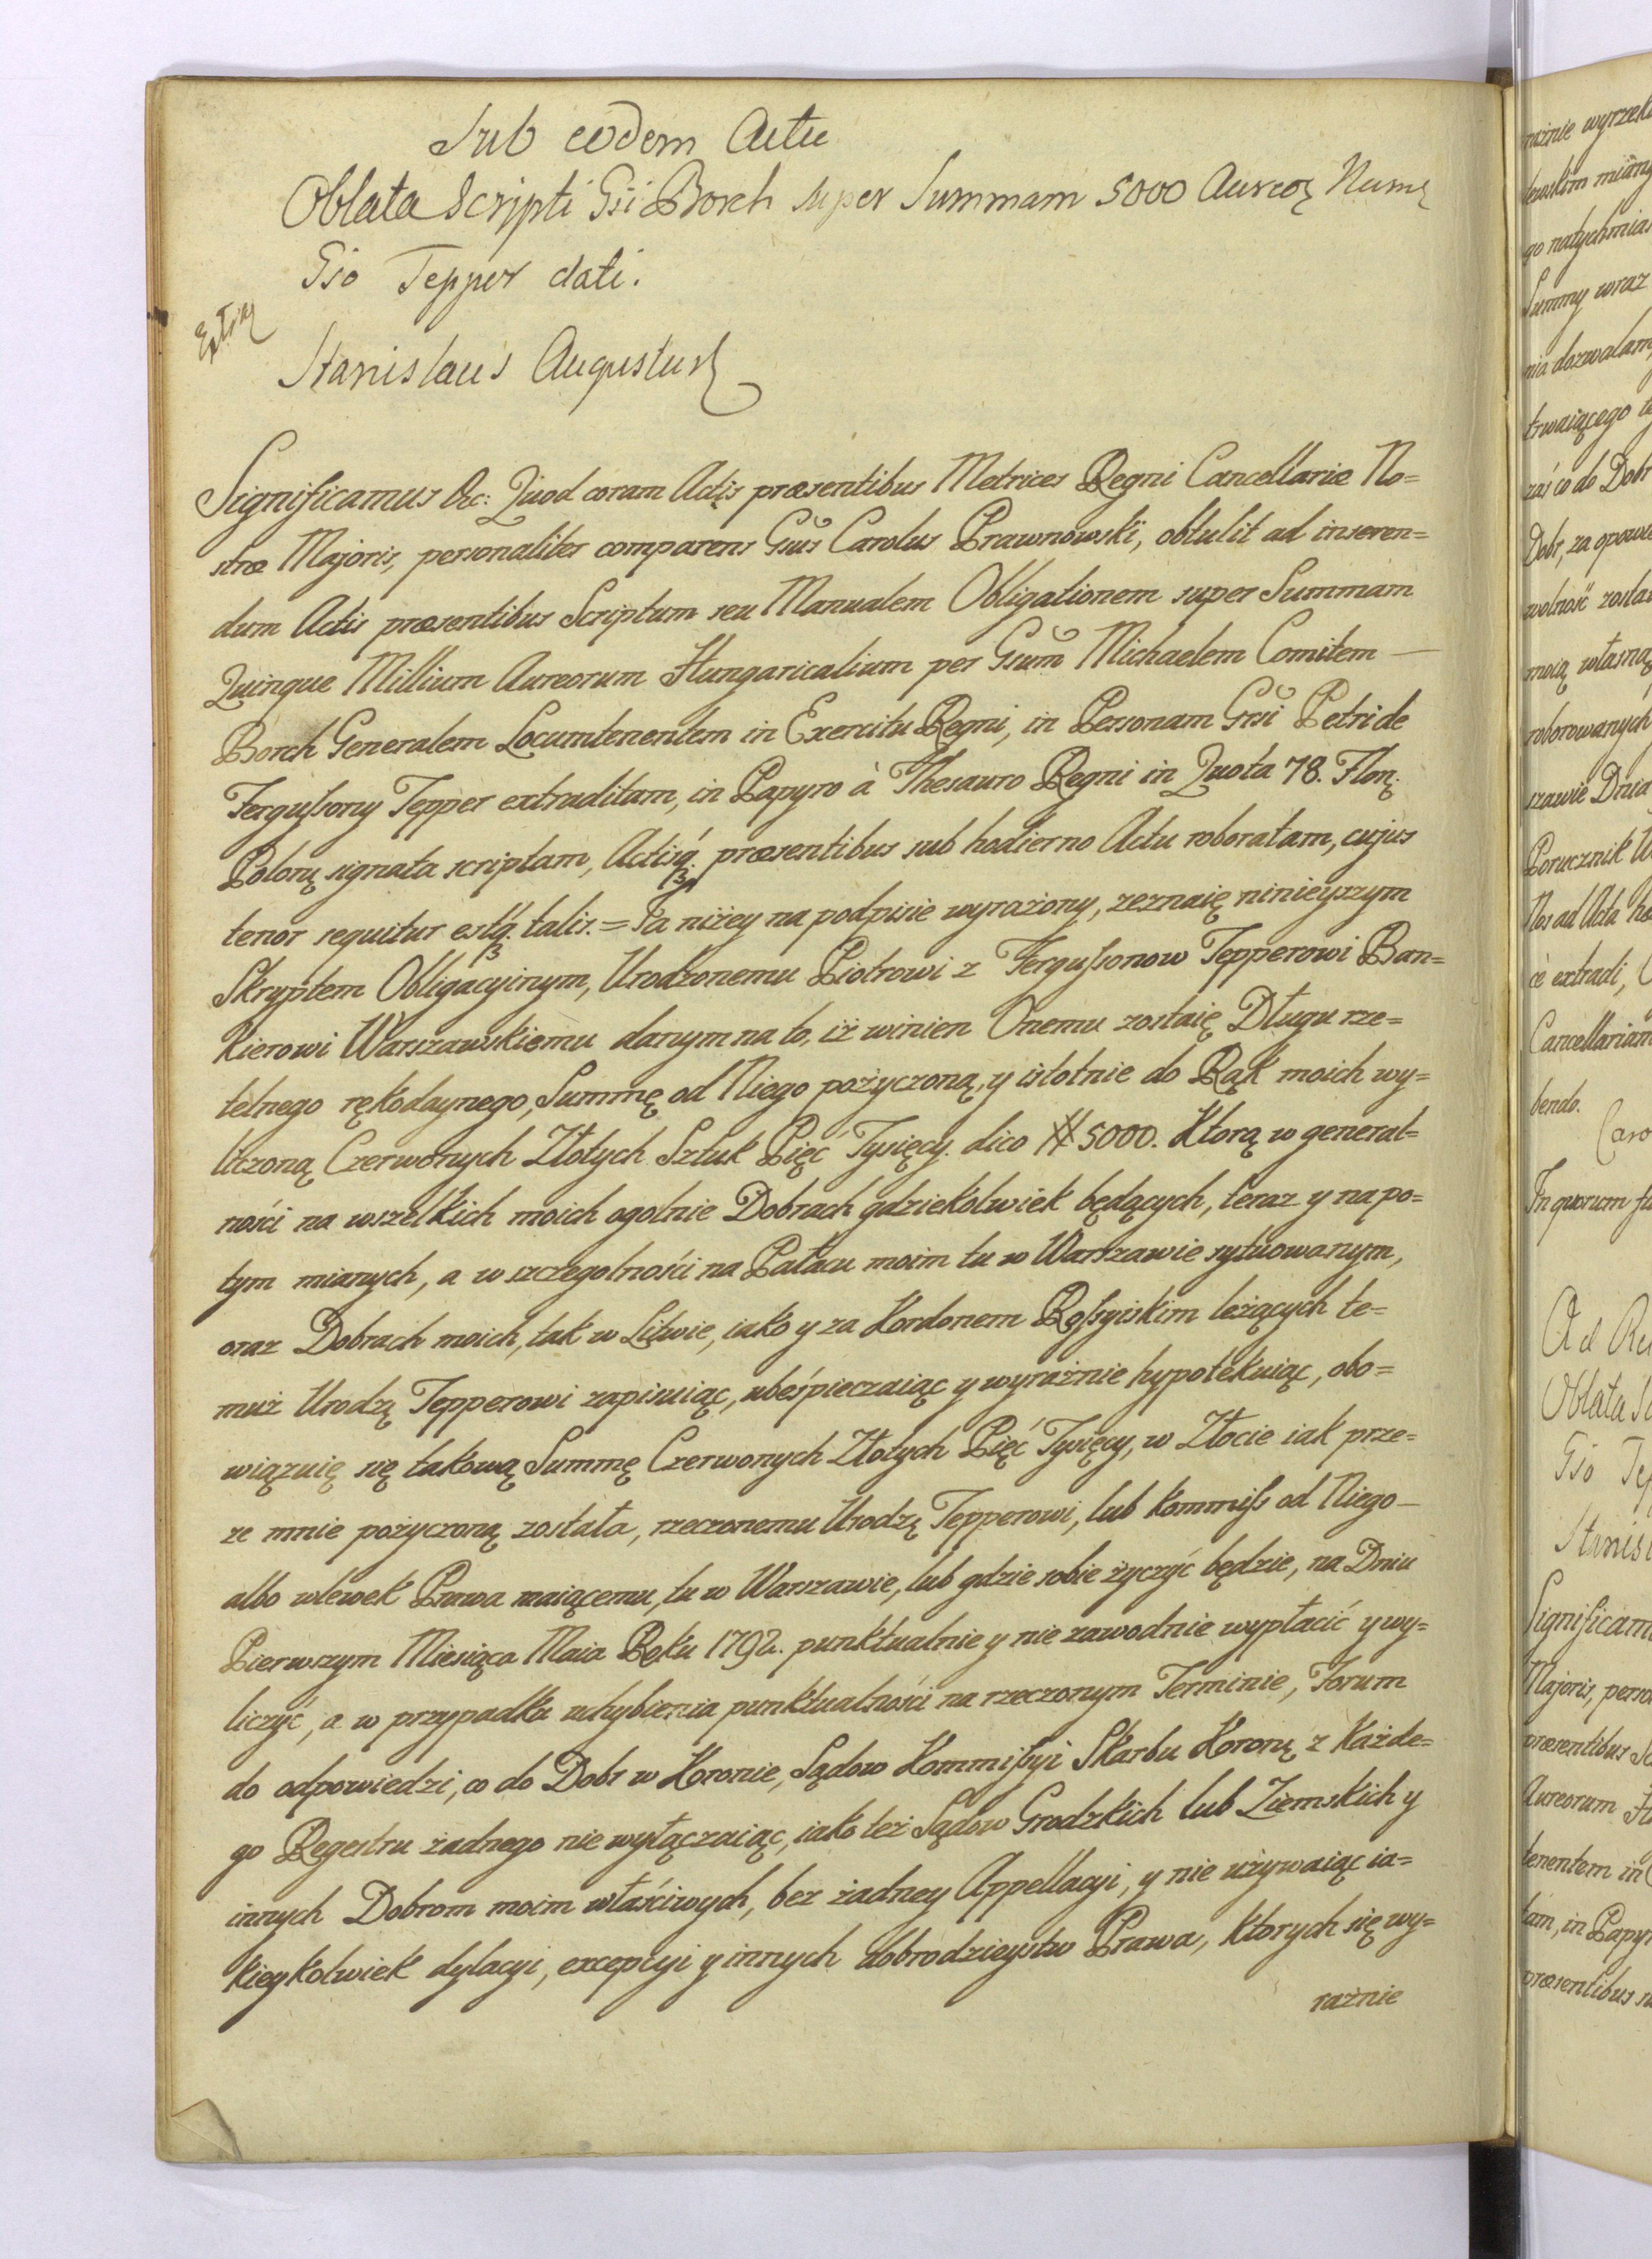 Sub eodem Actu
Oblata Scripti Gsi Borch super Summam 5000 Aureoꝝ Numꝝ
Gso Tepper dati.
Extrꝝ
Stanislaus Augustus
Significamus &c: Quod coram Actis præsentibus Metrices Regni Cancellariæ No=
stræ Majoris, personaliter comparens Gsus Carolus Prawnowski, obtulit ad inseren=
dum Actis præsentibus Scriptum seu Manualem Obligationem super Summam
Quinque Millium Aureorum Hungaricalium per Gsum Michaelem Comitem —
Borch Generalem Locumtenentem in Exercitu Regni, in Personam Grsi Petri de
Ferguſsony Tepper extraditam, in Papyro à Thesauro Regni in Quota 78. Flonꝝ
Polonꝝ signata scriptam, Actisq́ꝫ præsentibus sub hodierno Actu roboratam, cujus
tenor sequitur estq́ꝫ talis. = Ja niżey na podpisie wyrażony, zeznaię ninieyszym
Skryptem Obligacyinym, Urodzonemu Piotrowi z Ferguſsonow Tepperowi Ban=
kierowi Warszawskiemu danym na to, iż winien Onemu zostaię Długu rze=
telnego rękodaynego, Summę od Niego pożyczoną, y istotnie do Rąk moich wy=
liczoną Czerwonych Złotych Sztuk Pięć Tysięcy. dico # 5000. Ktorą w general=
ności na wszelkich moich ogolnie Dobrach gdziekolwiek będących, teraz y napo=
tym mianych, a w szczegolności na Pałacu moim tu w Warszawie sytuowanym,
oraz Dobrach moich, tak w Litwie, iako y za Kordonem Roſsyiskim leżących te=
muż Urodzꝝ Tepperowi zapisuiąc, ubeśpieczaiąc y wyraźnie hypotekuiąc, obo=
wiązuię się takową Summę Czerwonych Złotych Pięć Tysięcy, w Złocie iak prze=
ze mnie pożyczoną została, rzeczonemu Urodzꝝ Tepperowi, lub kommiſs od Niego —
albo wlewek Prawa maiącemu, tu w Warszawie, lub gdzie sobie życzyć będzie, na Dniu
Pierwszym Miesiąca Maia Roku 1792. punktualnie y nie zawodnie wypłacić y wy=
liczyć, a w przypadku uchybienia punktualności na rzeczonym Terminie, Forum
do odpowiedzi, co do Dobr w Koronie, Sądow Kommiſsyi Skarbu Koronꝝ z każde=
go Regestru żadnego nie wyłączaiąc, iako też Sądow Grodzkich lub Ziemskich y
innych Dobrom moim właściwych, bez żadney Appellacyi, y nie używaiąc ia=
kieykolwiek dylacyi, excepcyi y innych dobrodzieystw Prawa, ktorych się wy=
raźnie
raźnie wyrzeka
go natychmias
Summy wraz
nia dozwalam
trwaiącego te
zaś co do Dobr
wolność zosta
mocą własną
roborowanych
szawie Dnia
Porucznik W
Nos ad Acta
Cancellariam
bendo.
Caro
In quorum fi
Ad Re
Oblata Sc
Gso Tep
Stanis
Significam
Majoris, perso
præsentibus Sc
Aureorum Hu
tenentem in
tam, in Papyr
præsentibus su